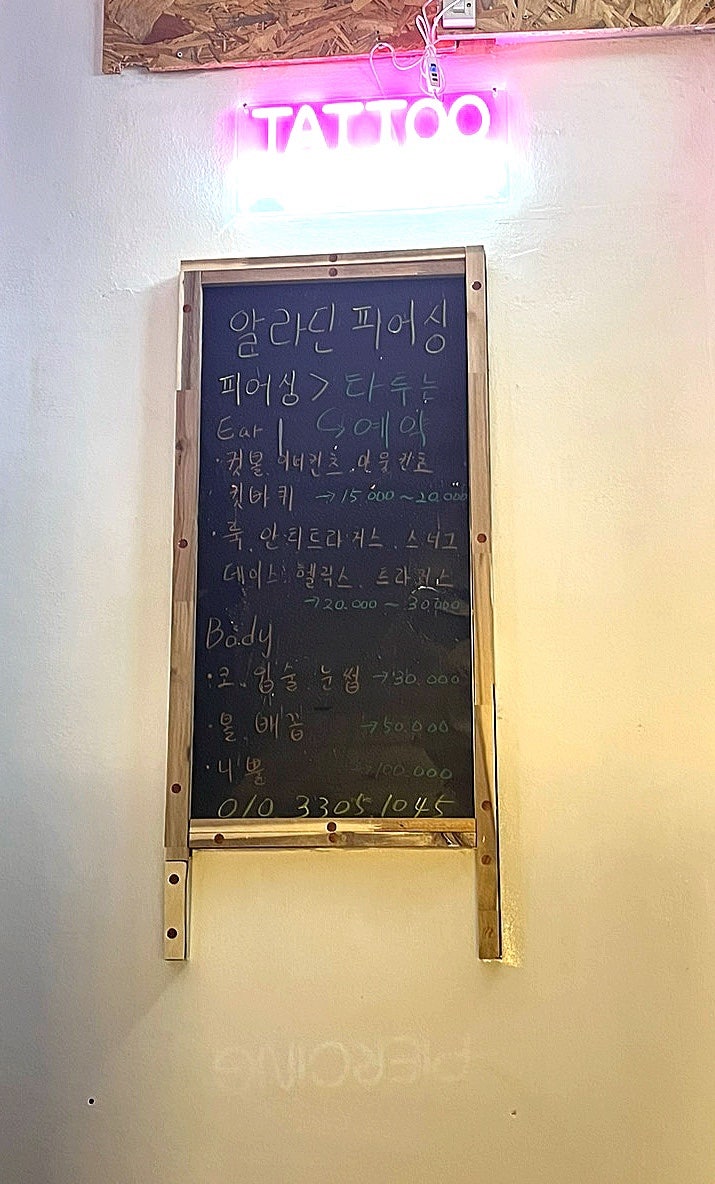 TATTOO
알라딘 피어싱
피어싱 > 타투는
Ear ↳ 예약
·귓볼. 이너컨츠. 아웃컨츠
귓바퀴 →15,000~20,000
·룩. 안티트라거스. 스너그
데이스. 헬릭스. 트라거스
→20.000~30,000
Body
·코. 입술. 눈썹 →30.000
·볼. 배꼽 →50,000
·니쁠 →100,000
010 3305 1045
PIERCING